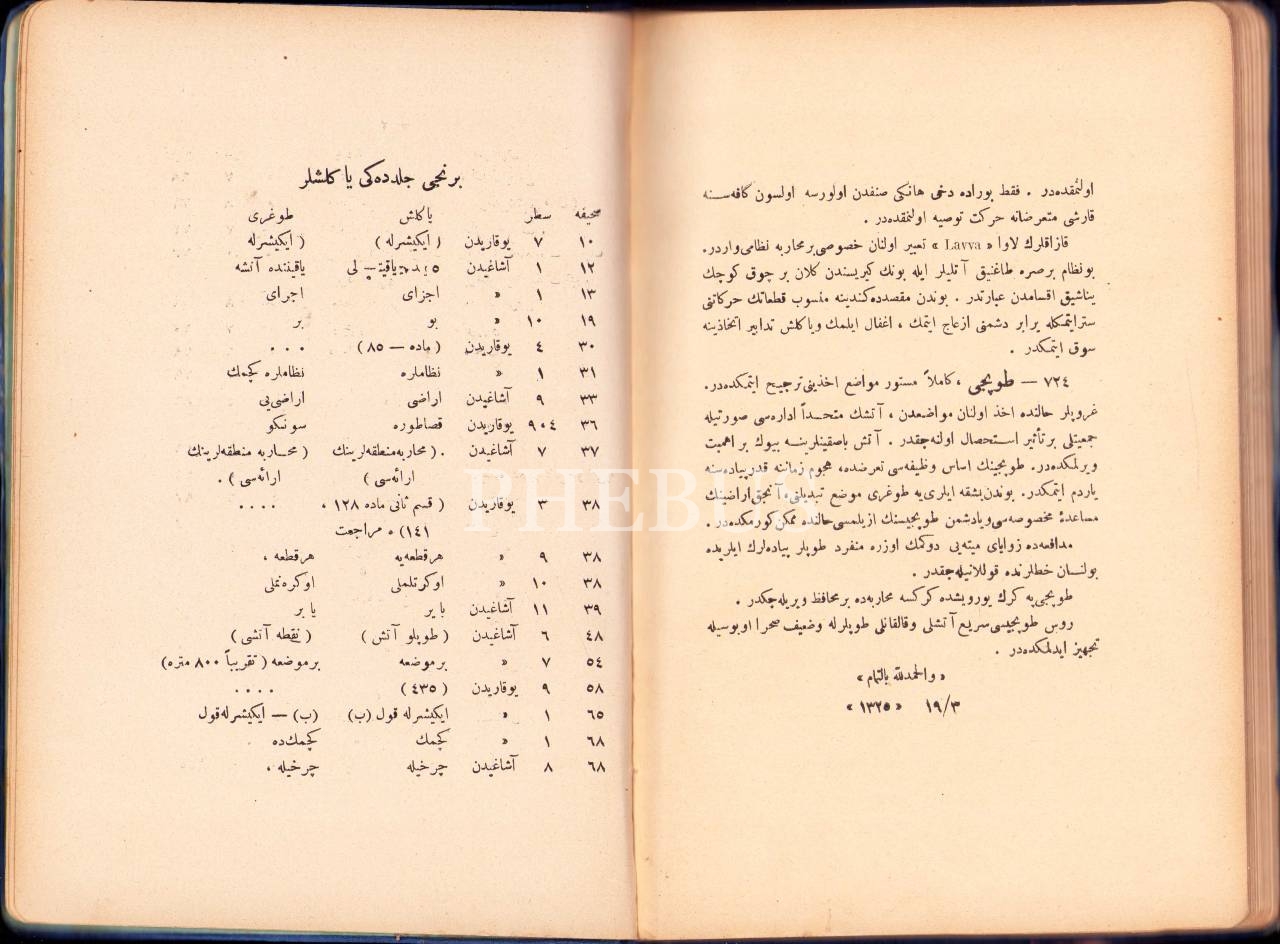 اولنمقده‌در . فقط بوراده دخی هانكی صنفدن اولورسه اولسون كافه‌سنه
قارشی متعرضانه حركت توصیه اولنمقده‌در.
قازاقلرك لاوا « Lavva » تعبیر اولنان خصوصی بر محاربه نظامی واردر.
بونظام برصره طاغنیق آتلیلر ایله بونك كیریسندن كلان بر چوق كوچك
یناشیق اقسامدن عبارتدر . بوندن مقصدده كندینه منسوب قطعاتك حركاتنی
ستر ایتمكله برابر دشمنی ازعاج ایتمك ، اغفال ایلمك ویاكلش تدابیر اتخاذینه
سوق ایتمكدر .
٧٢٤ — طوپجی ، كاملاً مستور مواضع اخذینی ترجیح ایتمكده‌در.
غروپلر حالنده اخذ اولنان مواضعدن ، آتشك متحداً اداره‌سی صورتیله
جمعیتلی بر تأثیر استحصال اولنه‌جقدر . آتش باصقینلرینه بیوك بر اهمیت
ویرلمكده‌در. طوپجینك اساس وظیفه‌سی تعرضده، هجوم زماننه قدر پیاده‌سنه
یاردم ایتمكدر. بوندن بشقه ایلری‌یه طوغری موضع تبدیلنی، آنجق اراضینك
مساعدۀ مخصوصه‌سی ویا دشمن طوپجیسنك ازیلمسی حالنده ممكن كورمكده‌در .
مدافعه‌ده زوایای میته‌یی دوكمك اوزره منفرد طوپلر پیاده‌لرك ایلریده
بولنان خطلرنده قوللانیله‌جقدر .
طوپجی‌یه كرك یورویشده كركسه محاربه‌ده بر محافظ ویریله‌جكدر .
روس طوپجیسی سریع آتشلی وقالقانلی طوپلرله وضعیف صحرا اوبوسیله
تجهیز ایدلمكده‌در .
« والحمدلله بالتمام »
١٩/٣ « ١٣٢٥ »
برنجی جلدده‌كی یاكلشلر
صحیفه سطار یاكلش طوغری
١٠ ٧ یوقاریدن ( ایكیشرله ) ( ایكیشرله
١٢ ١ آشاغیدن لی یاقیننده آتشه
١٣ ١ » اجزای اجرای
١٩ ١٠ » بو بر
٣٠ ٤ یوقاریدن ( ماده — ٨٥ ) . . .
٣١ ١ » نظاملره نظاملره كچمك
٣٣ ٩ آشاغیدن اراضی اراضی‌یی
٣٦ ٩٠٤ یوقاریدن قصاطوره سونكو
٣٧ ٧ آشاغیدن . ( محاربه منطقه‌لرینك ( محاربه منطقه‌لرینك
ارائه‌سی ) ارائه‌سی ) .
٣٨ ٣ یوقاریدن ( قسم ثانی ماده ١٢٨ ، . . . .
١٤١) ه مراجعت
٣٨ ٩ » هرقطعه‌یه هرقطعه ،
٣٨ ١٠ » اوكرتلملی اوكره‌نملی
٣٩ ١١ آشاغیدن بایر یا بر
٤٨ ٦ آشاغیدن ( طوپلو آتش ) ( نقطه آتشی )
٥٤ ٧ » برموضعه برموضعه ( تقریباً ٨٠٠ متره )
٥٨ ٩ یوقاریدن ( ٤٣٥ ) . . . .
٦٥ ١ » ایكیشرله قول (ب) (ب) — ایكیشرله قول
٦٨ ١ » كچمك كچمك‌ده
٦٨ ٨ آشاغیدن چرخیله چرخیله ،
PHEBUS